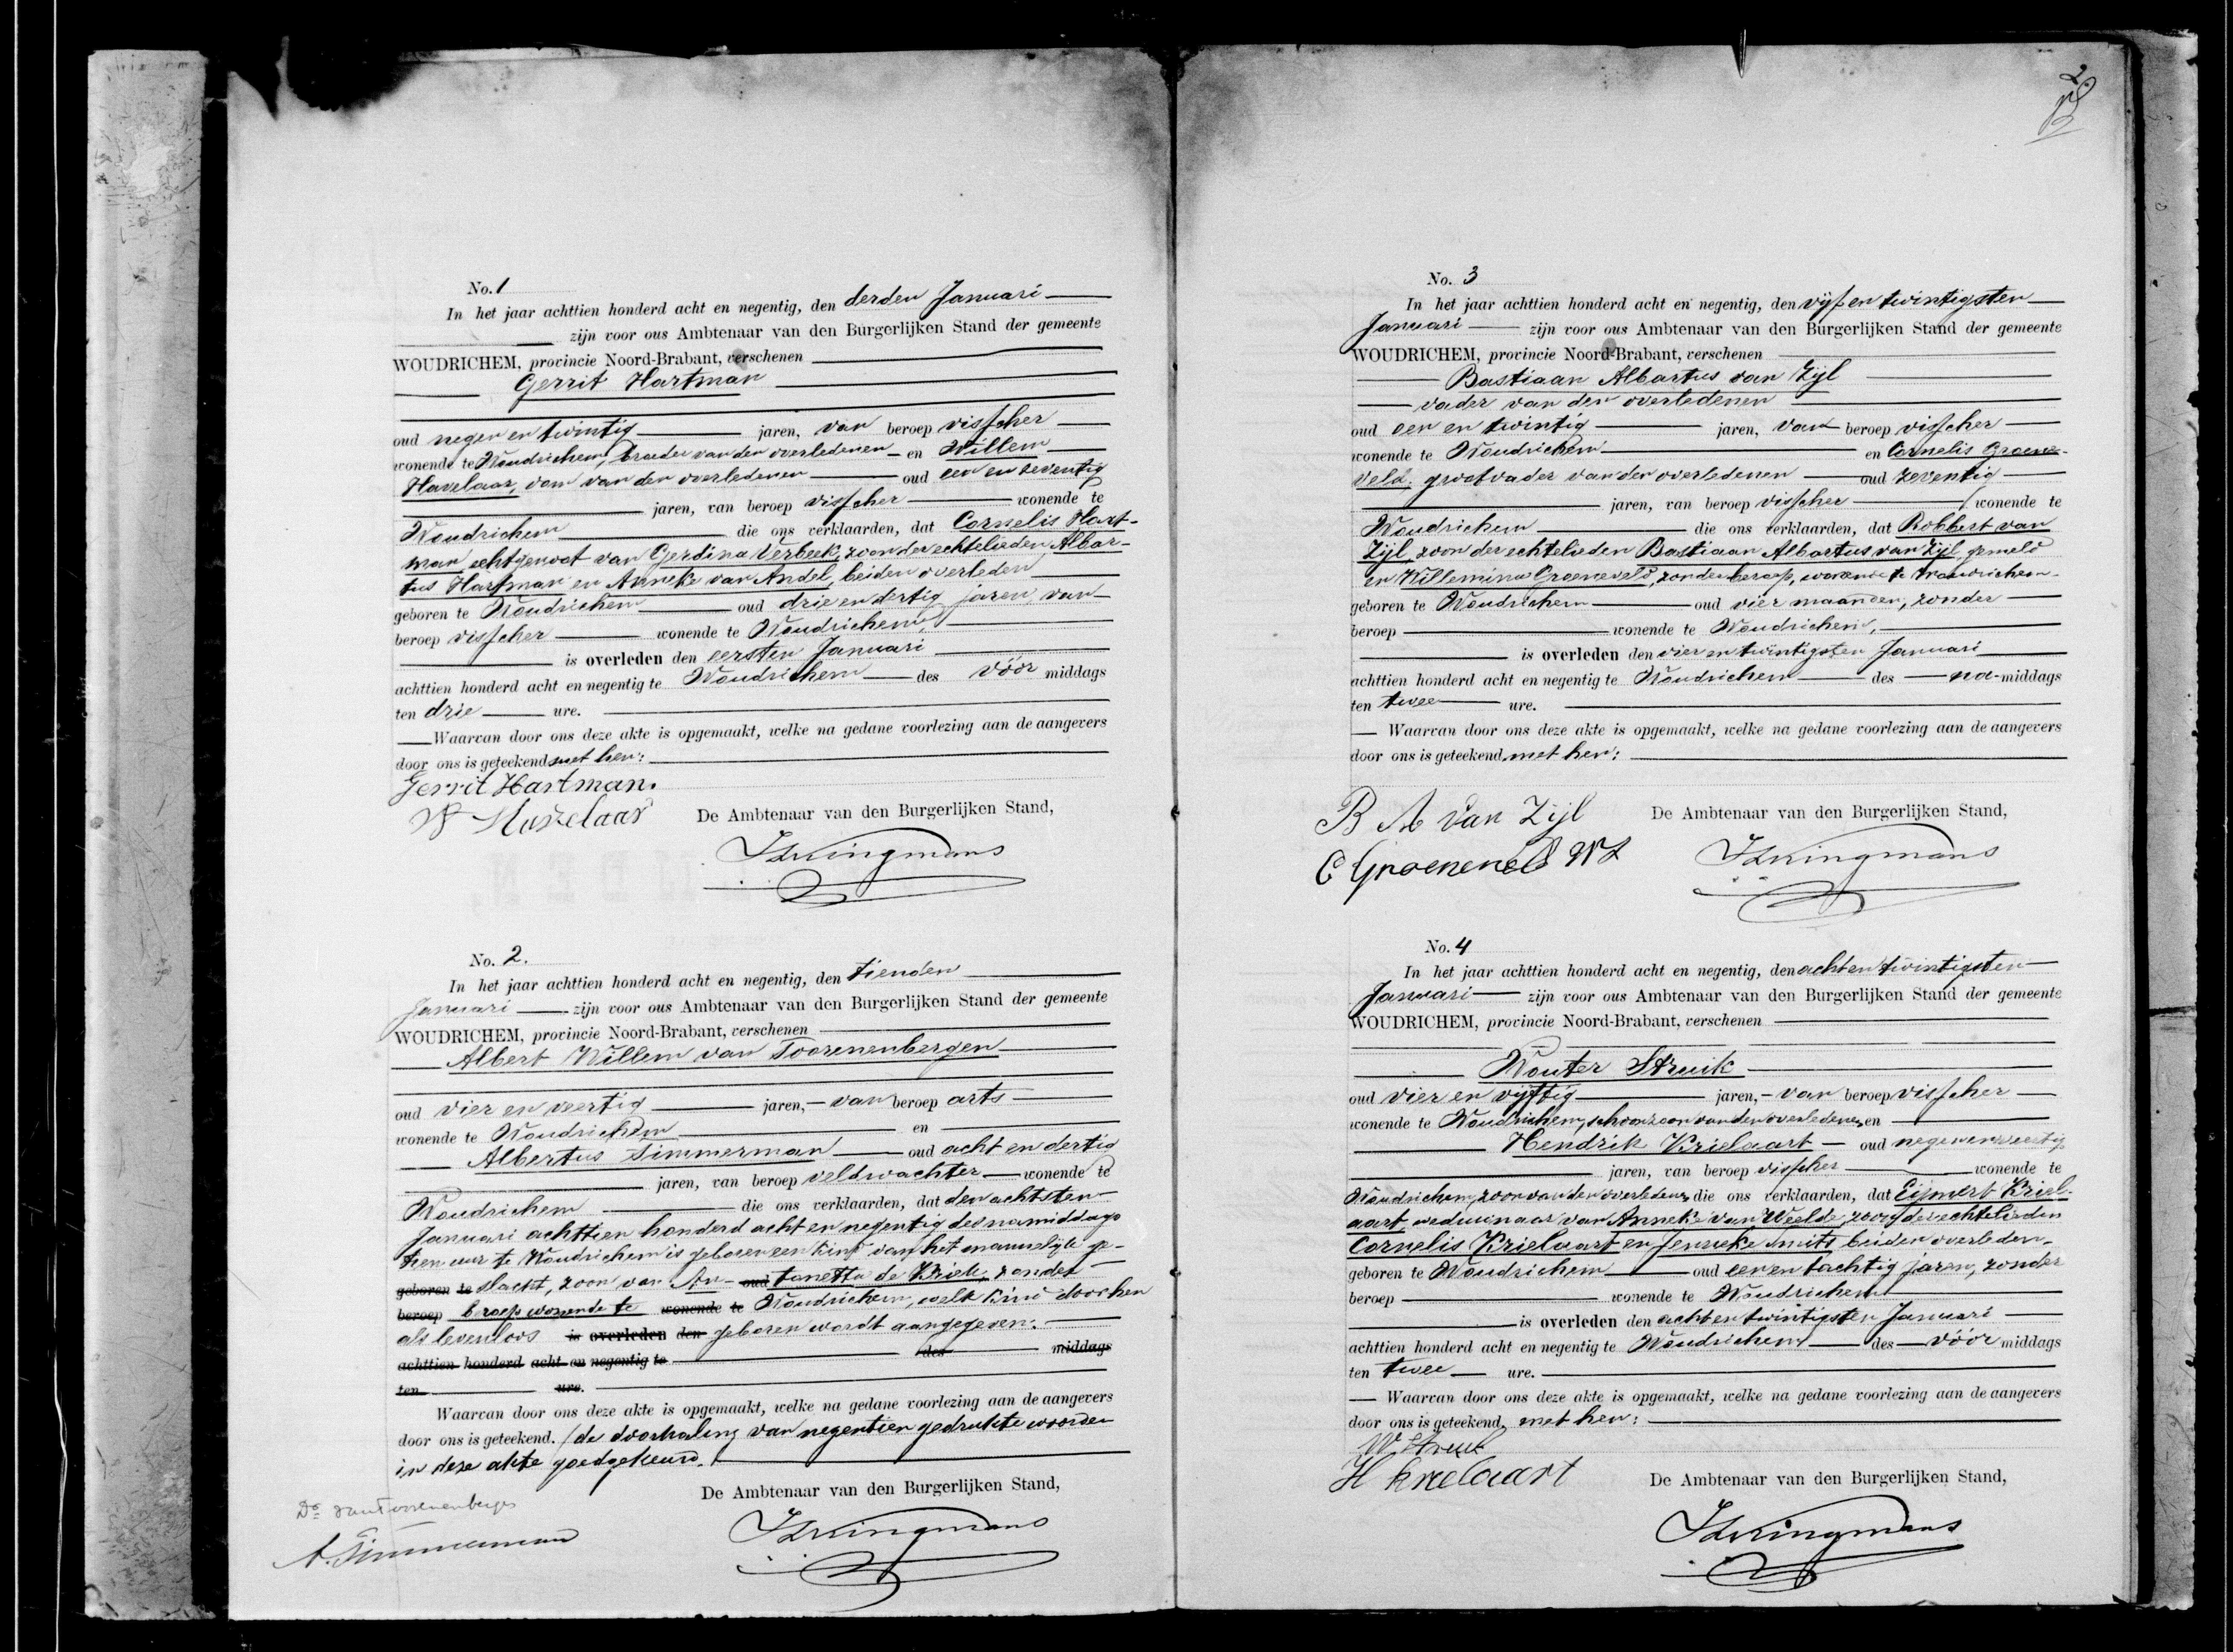 No. 1
In het jaar achttien honderd acht en negentig, den derden Januari
zijn voor ons Ambtenaar van den Burgerlijken Stand der gemeente
WOUDRICHEM, provincie Noord-Brabant, verschenen
Gerrit Hartman
oud negen en twintig jaren, van beroep visscher
wonende te Woudrichem, broeder van den overledenen en Willem
Havelaar, oom van den overledenen oud een en zeventig
jaren, van beroep visscher wonende te
Woudrichem die ons verklaarden, dat Cornelis Hart-
man, echtgenoot van Gerdina Verbeek, zoon der echtelieden Albar-
tus Hartman en Anneke van Andel, beiden overleden
geboren te Woudrichem oud drie en dertig jaren, van
beroep visscher wonende te Woudrichem,
is overleden den eersten Januari
achttien honderd acht en negentig te Woudrichem des vóór middags
ten drie ure.
Waarvan door ons deze akte is opgemaakt, welke na gedane voorlezing aan de aangevers
door ons is geteekend met hen:
Gerrit Hartman.
W Havelaar
De Ambtenaar van den Burgerlijken Stand,
No. 2.
In het jaar achttien honderd acht en negentig, den tienden
Januari zijn voor ons Ambtenaar van den Burgerlijken Stand der gemeente
WOUDRICHEM, provincie Noord-Brabant, verschenen
Albert Willem van Toorenenbergen
oud vier en veertig jaren, van beroep arts
wonende te Woudrichem en
Albertus Timmerman oud acht en dertig
jaren, van beroep veldwachter wonende te
Woudrichem die ons verklaarden, dat den achtsten
Januari achttien honderd acht en negentig des namiddags
tien uur te Woudrichem is geboren een kind van het mannelijk ge-
geboren te slacht, zoon van An- oud tonetta de Kriek, zonder
beroep beroep wonende te wonende te Woudrichem, welk kind door hen
als levenloos is overleden den geboren wordt aangegeven.
achttien honderd acht en negentig te des middags
ten ure.
Waarvan door ons deze akte is opgemaakt, welke na gedane voorlezing aan de aangevers
door ons is geteekend. /de doorhaling van negentien gedrukte woorden
in deze akte goedgekeurd.
Dr van Toorenenbergen
A. Timmerman
De Ambtenaar van den Burgerlijken Stand,
2
No. 3
In het jaar achttien honderd acht en negentig, den vijf en twintigsten
Januari zijn voor ons Ambtenaar van den Burgerlijken Stand der gemeente
WOUDRICHEM, provincie Noord-Brabant, verschenen
Bastiaan Albartus van Zijl
vader van den overledenen
oud een en twintig jaren, van beroep visscher
wonende te Woudrichem en Cornelis Groene-
veld, grootvader van den overledenen oud zeventig
jaren, van beroep visscher wonende te
Woudrichem die ons verklaarden, dat Robbert van
Zijl, zoon der echtelieden Bastiaan Albartus van Zijl, gemeld
en Willemina Groeneveld, zonder beroep, wonende te Woudrichem
geboren te Woudrichem oud vier maanden, zonder
beroep wonende te Woudrichem,
is overleden den vier en twintigsten Januari
achttien honderd acht en negentig te Woudrichem des na-middags
ten twee ure.
Waarvan door ons deze akte is opgemaakt, welke na gedane voorlezing aan de aangevers
door ons is geteekend, met hen:
B A van Zijl
C Groeneveld WZ
De Ambtenaar van den Burgerlijken Stand,
No. 4
In het jaar achttien honderd acht en negentig, den acht en twintigsten
Januari zijn voor ons Ambtenaar van den Burgerlijken Stand der gemeente
WOUDRICHEM, provincie Noord-Brabant, verschenen
Wouter Struik
oud vier en vijftig jaren, van beroep visscher
wonende te Woudrichem, schoonzoon van den overledenen, en
Hendrik Krielaart oud negen en veertig
jaren, van beroep visscher wonende te
Woudrichem, zoon van den overledenen, die ons verklaarden, dat Eijmert Kriel-
aart, weduwnaar van Anneke van Weelde, zoon der echtelieden
Cornelis Krielaart en Jenneke Smits, beiden overleden,
geboren te Woudrichem oud een en tachtig jaren, zonder
beroep wonende te Woudrichem
is overleden den acht en twintigsten Januari
achttien honderd acht en negentig te Woudrichem des vóór middags
ten twee ure.
Waarvan door ons deze akte is opgemaakt, welke na gedane voorlezing aan de aangevers
door ons is geteekend, met hen:
W Struik
H Krielaart
De Ambtenaar van den Burgerlijken Stand,